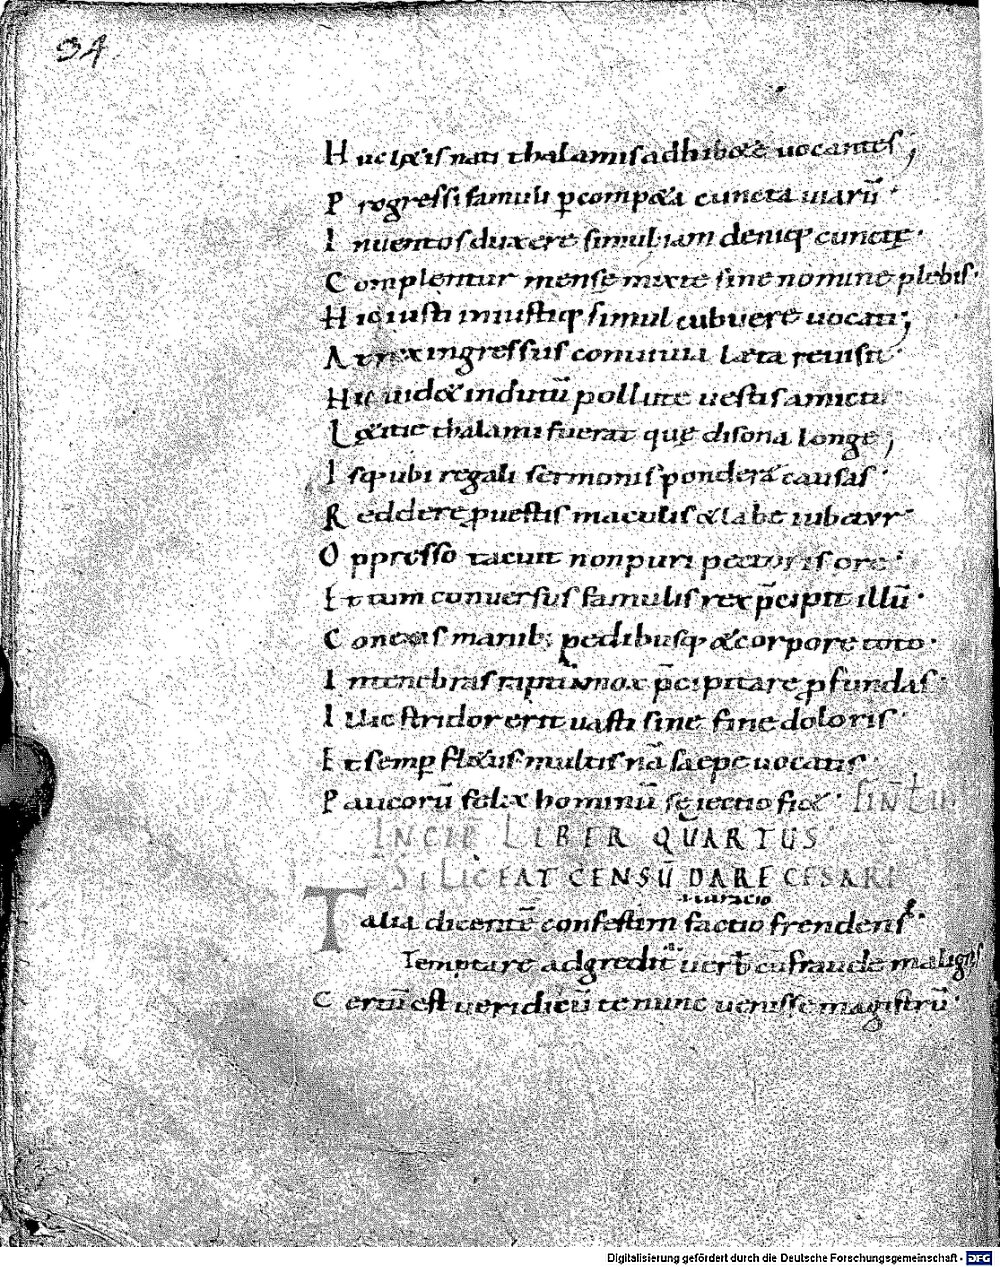 94
Huc laetis nati thalamis adhibete uocantes;
Progressi famuli p̲competa cuncta uiarū·
Inuentos duxere simul iam deniq; cunctę·
Complentur mensę mixte sine nomine plebis·
Hic iusti iniustiq; simul cubuere uocati;
At rex ingressus conuiuia laeta reuisit·
Hic uidet indutū pollute uestis amictu
Laetitie thalami fuerat quę disona longe;
Isq; ubi regali sermonis pondera causas·
Reddere p uestis maculis & labe iubetur·
Oppresso tacuit non puri pectoris ore·
Et tum conuersus famulis rex p̄cipit illū·
Conexis manib; pedibusq; & corpore toto·
In tenebras mox p̄cipitare pfundas·
Illic stridor erit uasti sine fine doloris·
Et semp fletus multis nā saepe uocatis·
Paucorū felix hominū seiectio fiet·
INCIP̄ LIBER QUARTUS
SI LICEAT CENSŪ DARE CESARI
Talia dicentē confestim factio frendens·
Temptare adgredit uerb cū fraude malignis
Certū est ueridicū te nunc uenisse magistrū·
Digitalisierung gefördert durch die Deutsche Forschungsgemeinschaft - DFG